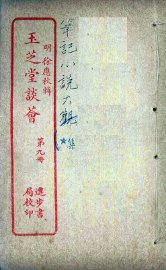 筆記小說大觀
集
明 徐應秋輯
玉芝堂談薈
第九冊
進步書
局校印